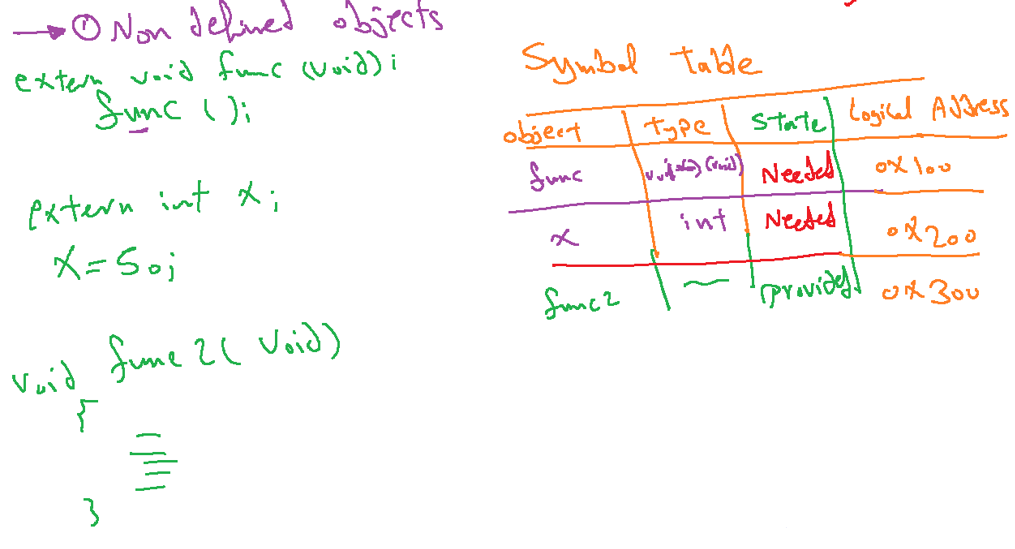 → ① Non defined objects
extern void func (void);
func ();
extern int x;
x = 50;
void func2 (void)
{
}
Symbol table
object type state Logical Address
func void (void) Needed 0x100
x int Needed 0x200
func2 provided 0x300